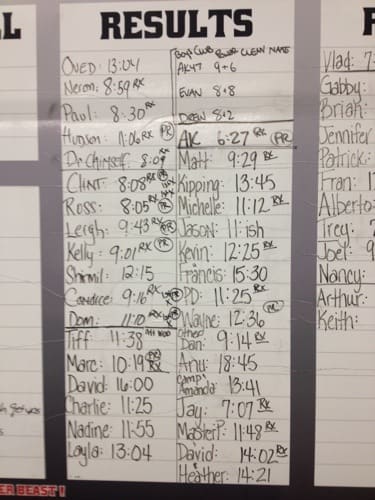 RESULTS
OVED: 13:04
Neron: 8:59 RX
Paul: 8:30 RX
Hudson: 11:06 RX PR
Dr Chimself: 8:09 RX
CLINT: 8:08 RX PR
Ross: 8:05 RX PR
Leigh: 9:43 RX PR
Kelly: 9:01 RX PR
Shirmil: 12:15
Candice: 9:16 RX PR
Dom: 11:10 RX
Tiff: 11:38
Marc: 10:19 RX PR
David: 16:00
Charlie: 11:25
Nadine: 11:55
Layla: 13:04
Boys Club Power Clean
AK47 9+6
EVAN 8+8
DREW 8+2
AK 6:27 RX PR
Matt: 9:29 RX
Kipping: 13:45
Michelle: 11:12 RX
JASON: 11:ish
Kevin: 12:25 RX
Francis: 15:30
PD: 11:25 RX
Wayne: 12:36 PR
other Dan: 9:14 RX
Anu: 18:45
camp Amanda: 13:41
Jay: 7:07 RX
MasterP: 11:48 RX
David: 14:02 RX
Heather: 14:21
Vlad: 7
Gabby:
Brian:
Jennifer
Patrick:
Fran: 1
Alberto:
Trey:
Joel: 9
Nancy:
Arthur:
Keith:
ER BEAST!